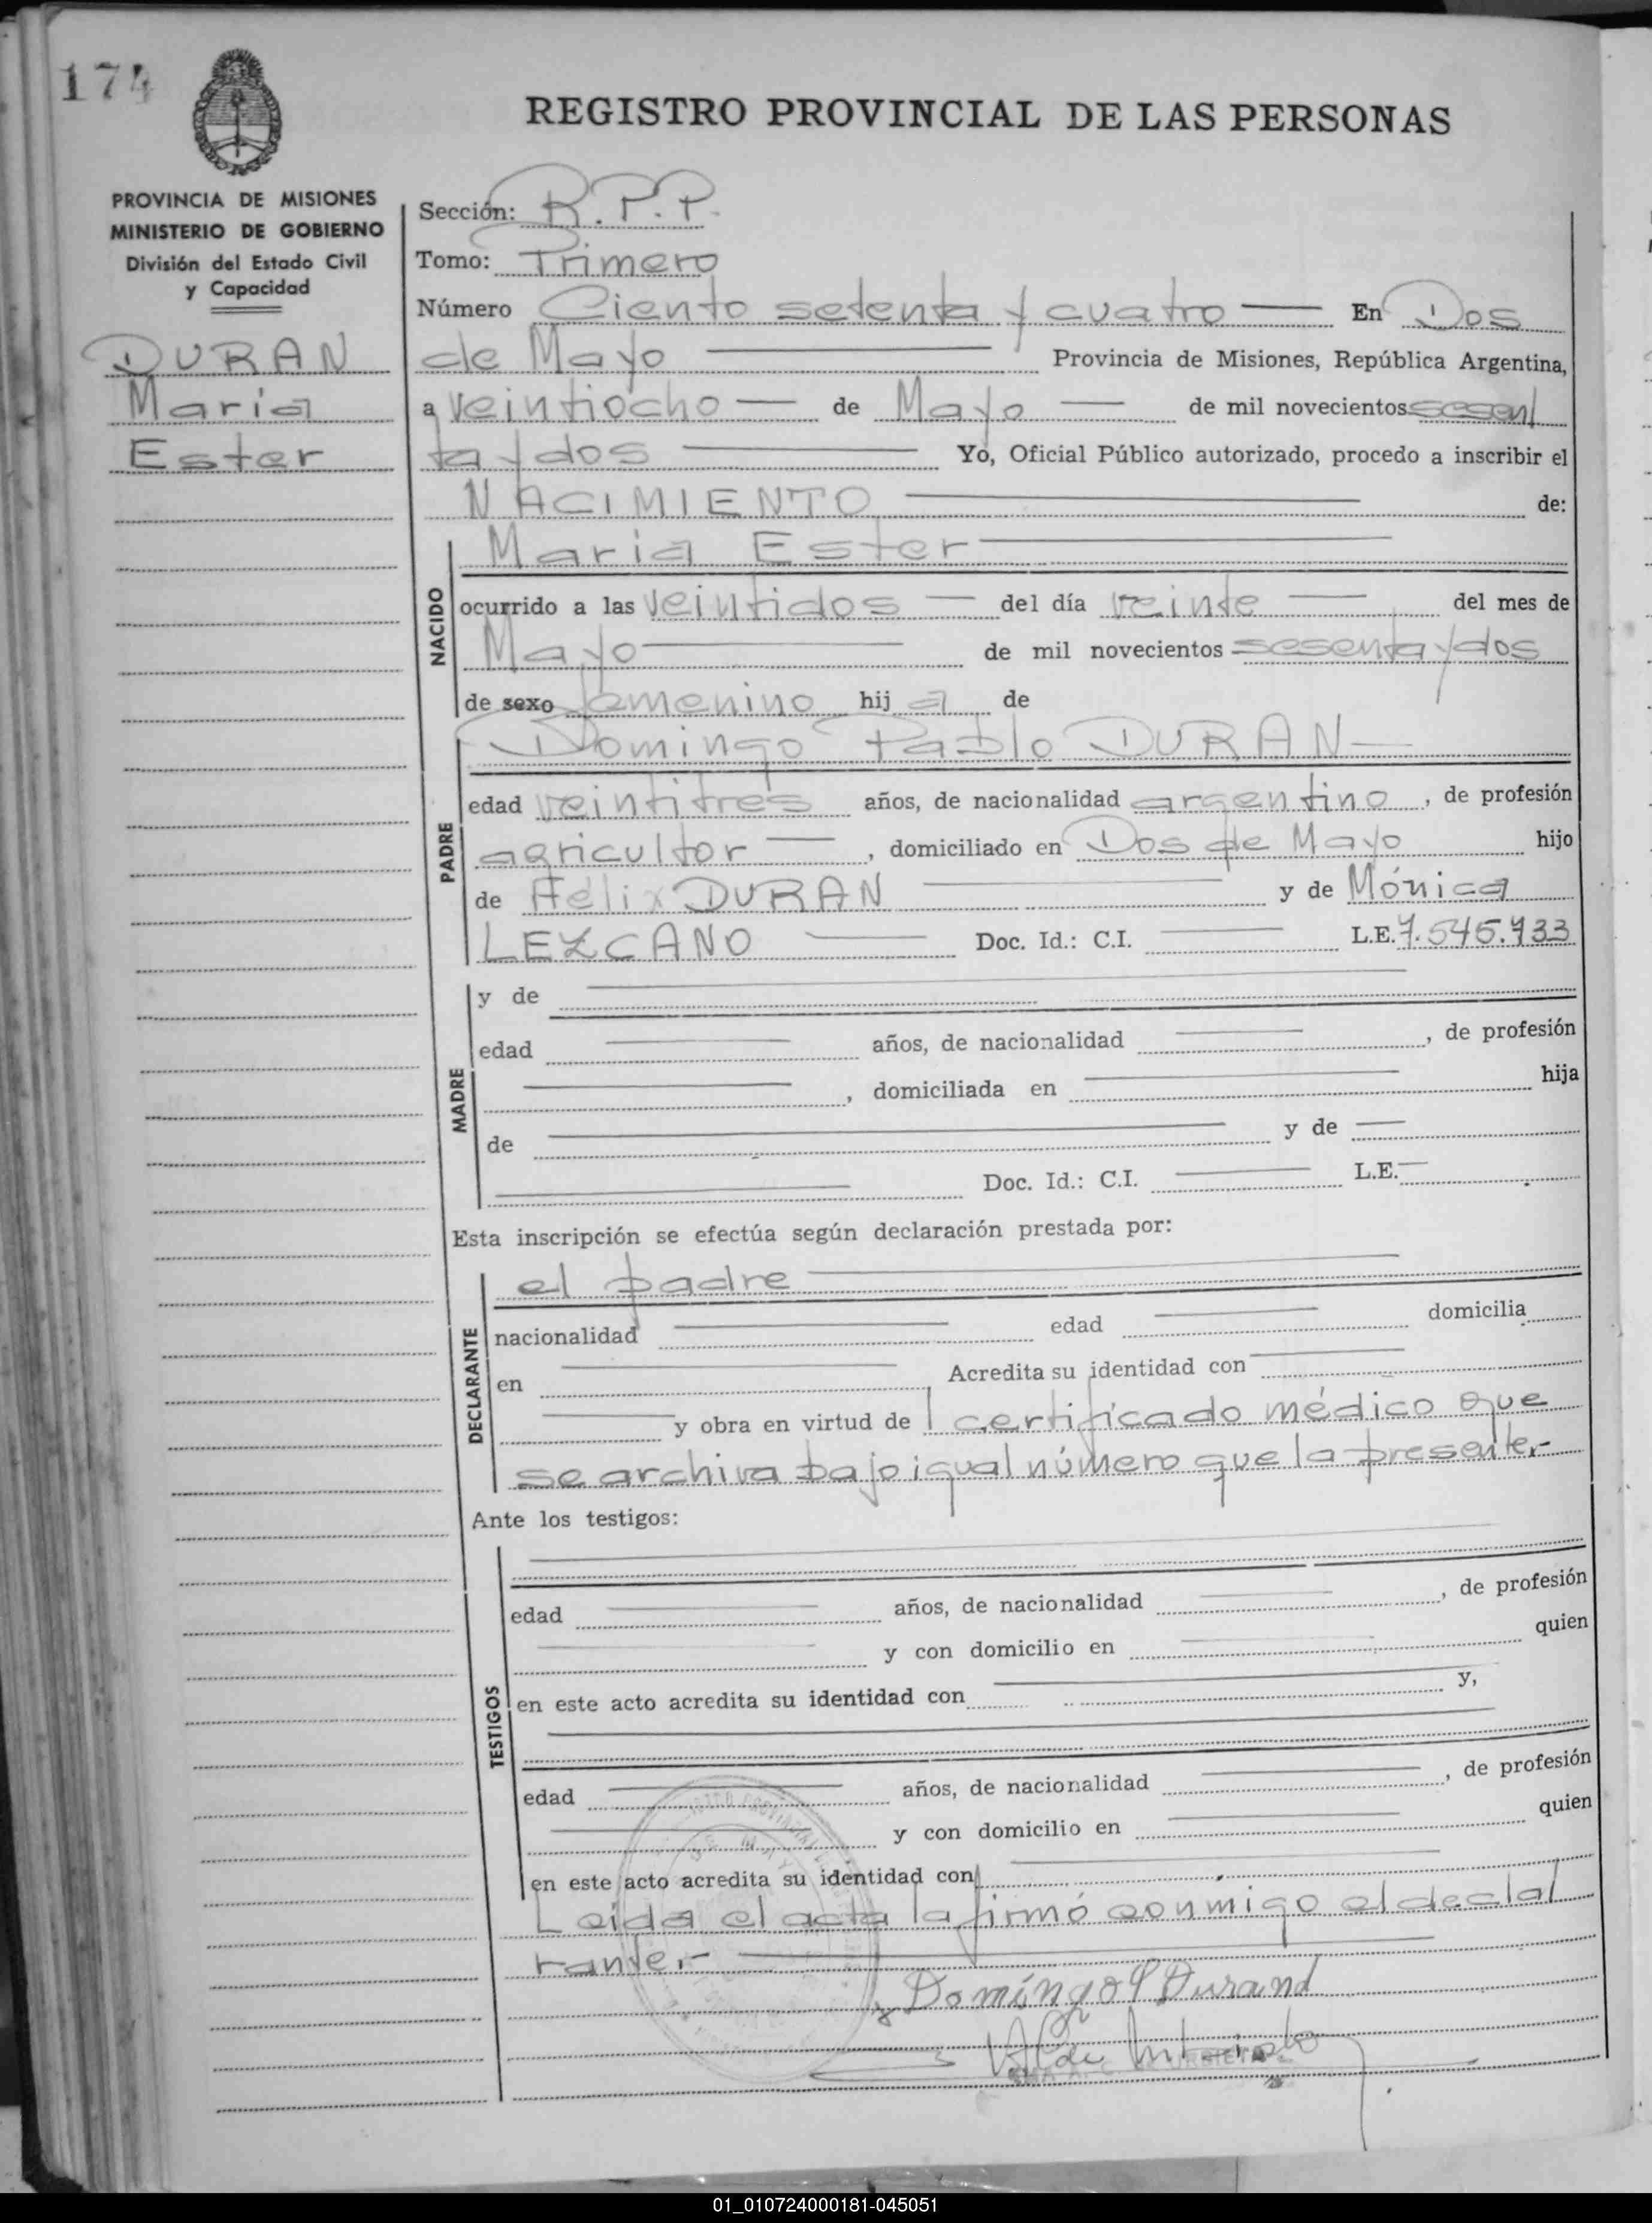 174
REGISTRO PROVINCIAL DE LAS PERSONAS
PROVINCIA DE MISIONES
MINISTERIO DE GOBIERNO
División del Estado Civil
y Capacidad
DURAN
Maria
Ester
Sección: R.P.P.
Tomo: Primero
Número Ciento setenta y cuatro En Dos
de Mayo Provincia de Misiones, República Argentina,
a veintiocho de Mayo de mil novecientos sesen
ta y dos Yo, Oficial Público autorizado, procedo a inscribir el
NACIMIENTO de:
NACIDO
Maria Ester
ocurrido a las veintidos del día veinte del mes de
Mayo de mil novecientos sesenta y dos
de sexo femenino hija de
PADRE
Domingo Pablo DURAN
edad veintitres años, de nacionalidad argentino, de profesión
agricultor, domiciliado en Dos de Mayo hijo
de Felix DURAN y de Mónica
LEZCANO Doc. Id.: C.I. L.E. 7.545.933
MADRE
y de
edad años, de nacionalidad , de profesión
, domiciliada en hija
de y de
Doc. Id.: C.I. L.E.
Esta inscripción se efectúa según declaración prestada por:
DECLARANTE
el padre
nacionalidad edad domicilia
en Acredita su identidad con
y obra en virtud de certificado médico que
se archiva bajo igual número que la presente.-
Ante los testigos:
TESTIGOS
edad años, de nacionalidad , de profesión
y con domicilio en quien
en este acto acredita su identidad con y,
edad años, de nacionalidad , de profesión
y con domicilio en quien
en este acto acredita su identidad con
Leída el acta la firmó conmigo el decla
rante.-
Domingo P Durand
01_010724000181-045051